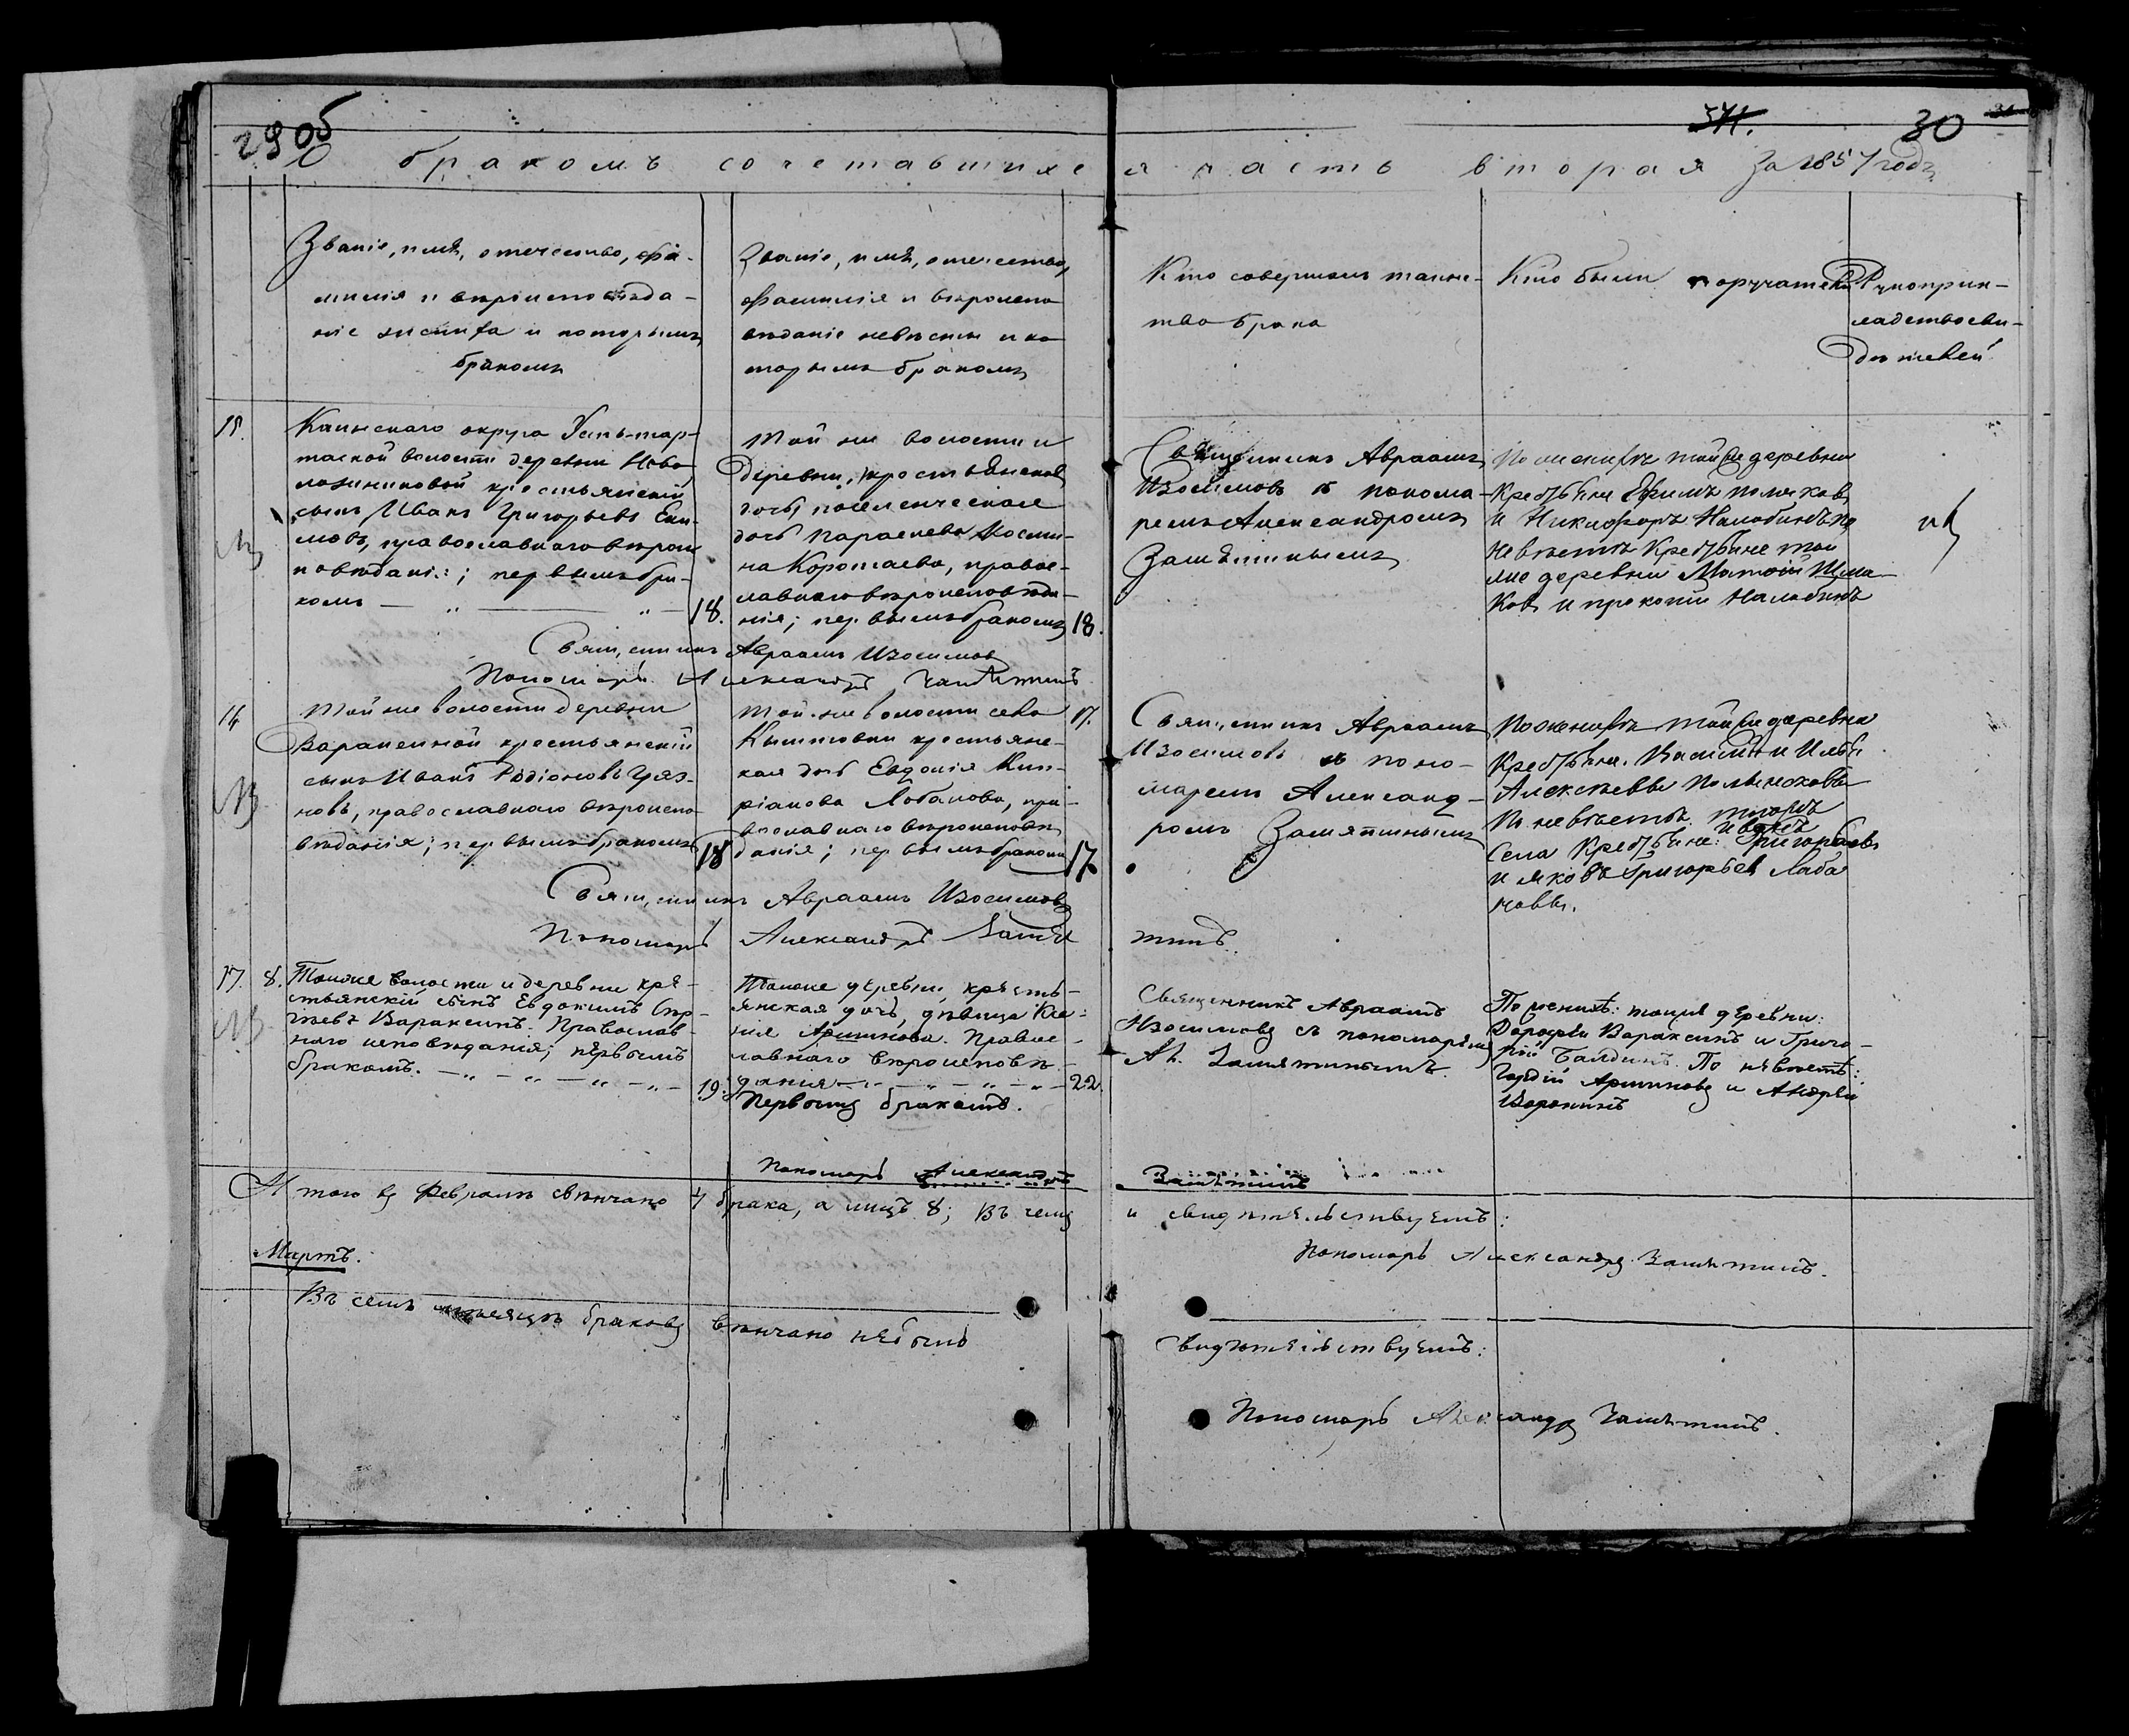 29 об
371.
30
О бракомъ сочетавшихся часть вторая За 1857 годъ
Званіе, имя, отечество, фа-
милія и вѣроисповѣда-
ніе жениха и которымъ
бракомъ
Званіе, имя, отечество,
фамилія и вѣроиспо
вѣданіе невѣсты и ко
торымъ бракомъ
Кто совершалъ таинс-
тво брака
Кто были поручатели
Рукоприк-
ладство сви-
дѣтелей
15.
Каинскаго округа Усть-тар-
таской волости деревни Ново
ложниковой крестьянскій
сынъ Иванъ Григорьевъ Еки-
мовъ, православнаго вѣроис
повѣданія; первымъ бра-
комъ — „ — „ — 18.
Той же волости и
деревни,
дочь Параскева
на Коротаева, правос-
лавнаго вѣроисповѣда-
нія; первымъ бракомъ 18.
Священникъ Авраамъ
Изосимовъ съ понома-
ремъ Александромъ
Замятинымъ
По женихѣ той же деревни
Крестьяне Ефимъ поляковъ
и Никифоръ Налобинъ по
невѣстѣ Крестьяне той
же деревни
и прокопи Налобинъ
Священникъ Авраамъ Изосимов
Пономарь Александръ Замятинъ
16
Той же волости деревни
Вараксиной крестьянскій
сынъ Иванъ Родіоновъ Гряз-
новъ, православнаго вѣроиспо-
вѣданія; первымъ бракомъ 18
Той же волости села 17.
Кыштовки крестьянс-
кая дочь Евдокія Кип-
ріанова Лобанова, пра-
вославнаго вѣроисповѣ
данія; первымъ бракомъ 17
Священникъ Авраамъ
Изосимовъ съ поно-
маремъ Александ-
ромъ Замятинымъ
По женихѣ той же деревни
Крестьяне. Василій и Илья
Алексѣевы
По невѣстѣ тогожъ
Иванъ
Села Крестьяне: Григорьевъ
и яковъ Григорьев Лоба
новы.
Священникъ Авраамъ Изосимовъ
Пономарь Александръ Замя
тинъ.
17. 8.
Тойже волости и деревни кре-
стьянскій сынъ Евдокимъ Сер-
гѣевъ Вараксинъ. Православ-
наго исповѣданія; первымъ
бракомъ. — „ — „ — „ — „ — 19.
Тойже деревни, кресть-
янская дочь, дѣвица Ксе-
нія Аршинова. Правос-
лавнаго вѣроисповѣ-
данія — „ — „ — „ — 22.
Первымъ бракомъ.
Священникъ Авраамъ
Изосимовъ съ пономаремъ
Ал. Замятинымъ.
По женихѣ: тойже деревни:
Дорофей Вараксинъ и Григо-
рій Балдинъ. По невѣстѣ:
Гордій Аршиновъ и Андрей
Воронинъ
Пономарь Александръ
Замятинъ
И того въ Февралѣ свѣнчано 4 брака, а лицъ 8; Въ чемъ
и свидѣтельствуемъ:
Пономарь Александръ Замятинъ.
Мартъ.
Въ семъ мѣсяцѣ браковъ вѣнчано небыло
свидѣтельствуемъ:
Пономарь Александръ Замятинъ.